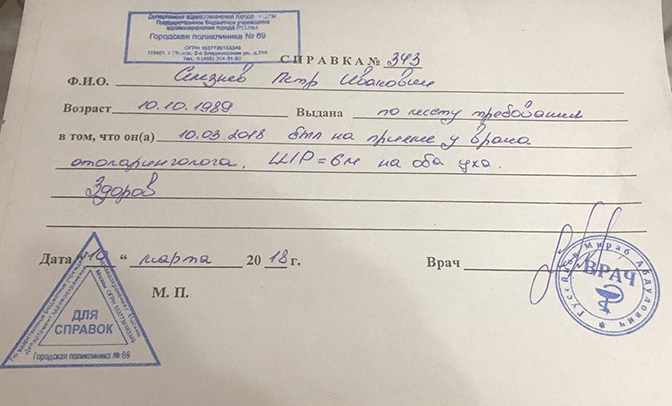 Департамент здравоохранения города Москвы
Государственное бюджетное учреждение
здравоохранения города Москвы
Городская поликлиника № 69
ОГРН 1037739153349
111401, г. Москва, 2-я Владимирская ул., д.31А
СПРАВКА № 343
Ф.И.О. Селезнёв Петр Иванович
Возраст 10.10.1989 Выдана по месту требования
в том, что он(а) 10.03.2018 был на приеме у врача
отоларинголога. ШР=6м на оба уха.
Здоров
Дата "10" марта 2018 г. Врач
М. П.
ДЛЯ
СПРАВОК
Городская поликлиника № 69
ВРАЧ
Мираб Абдулович